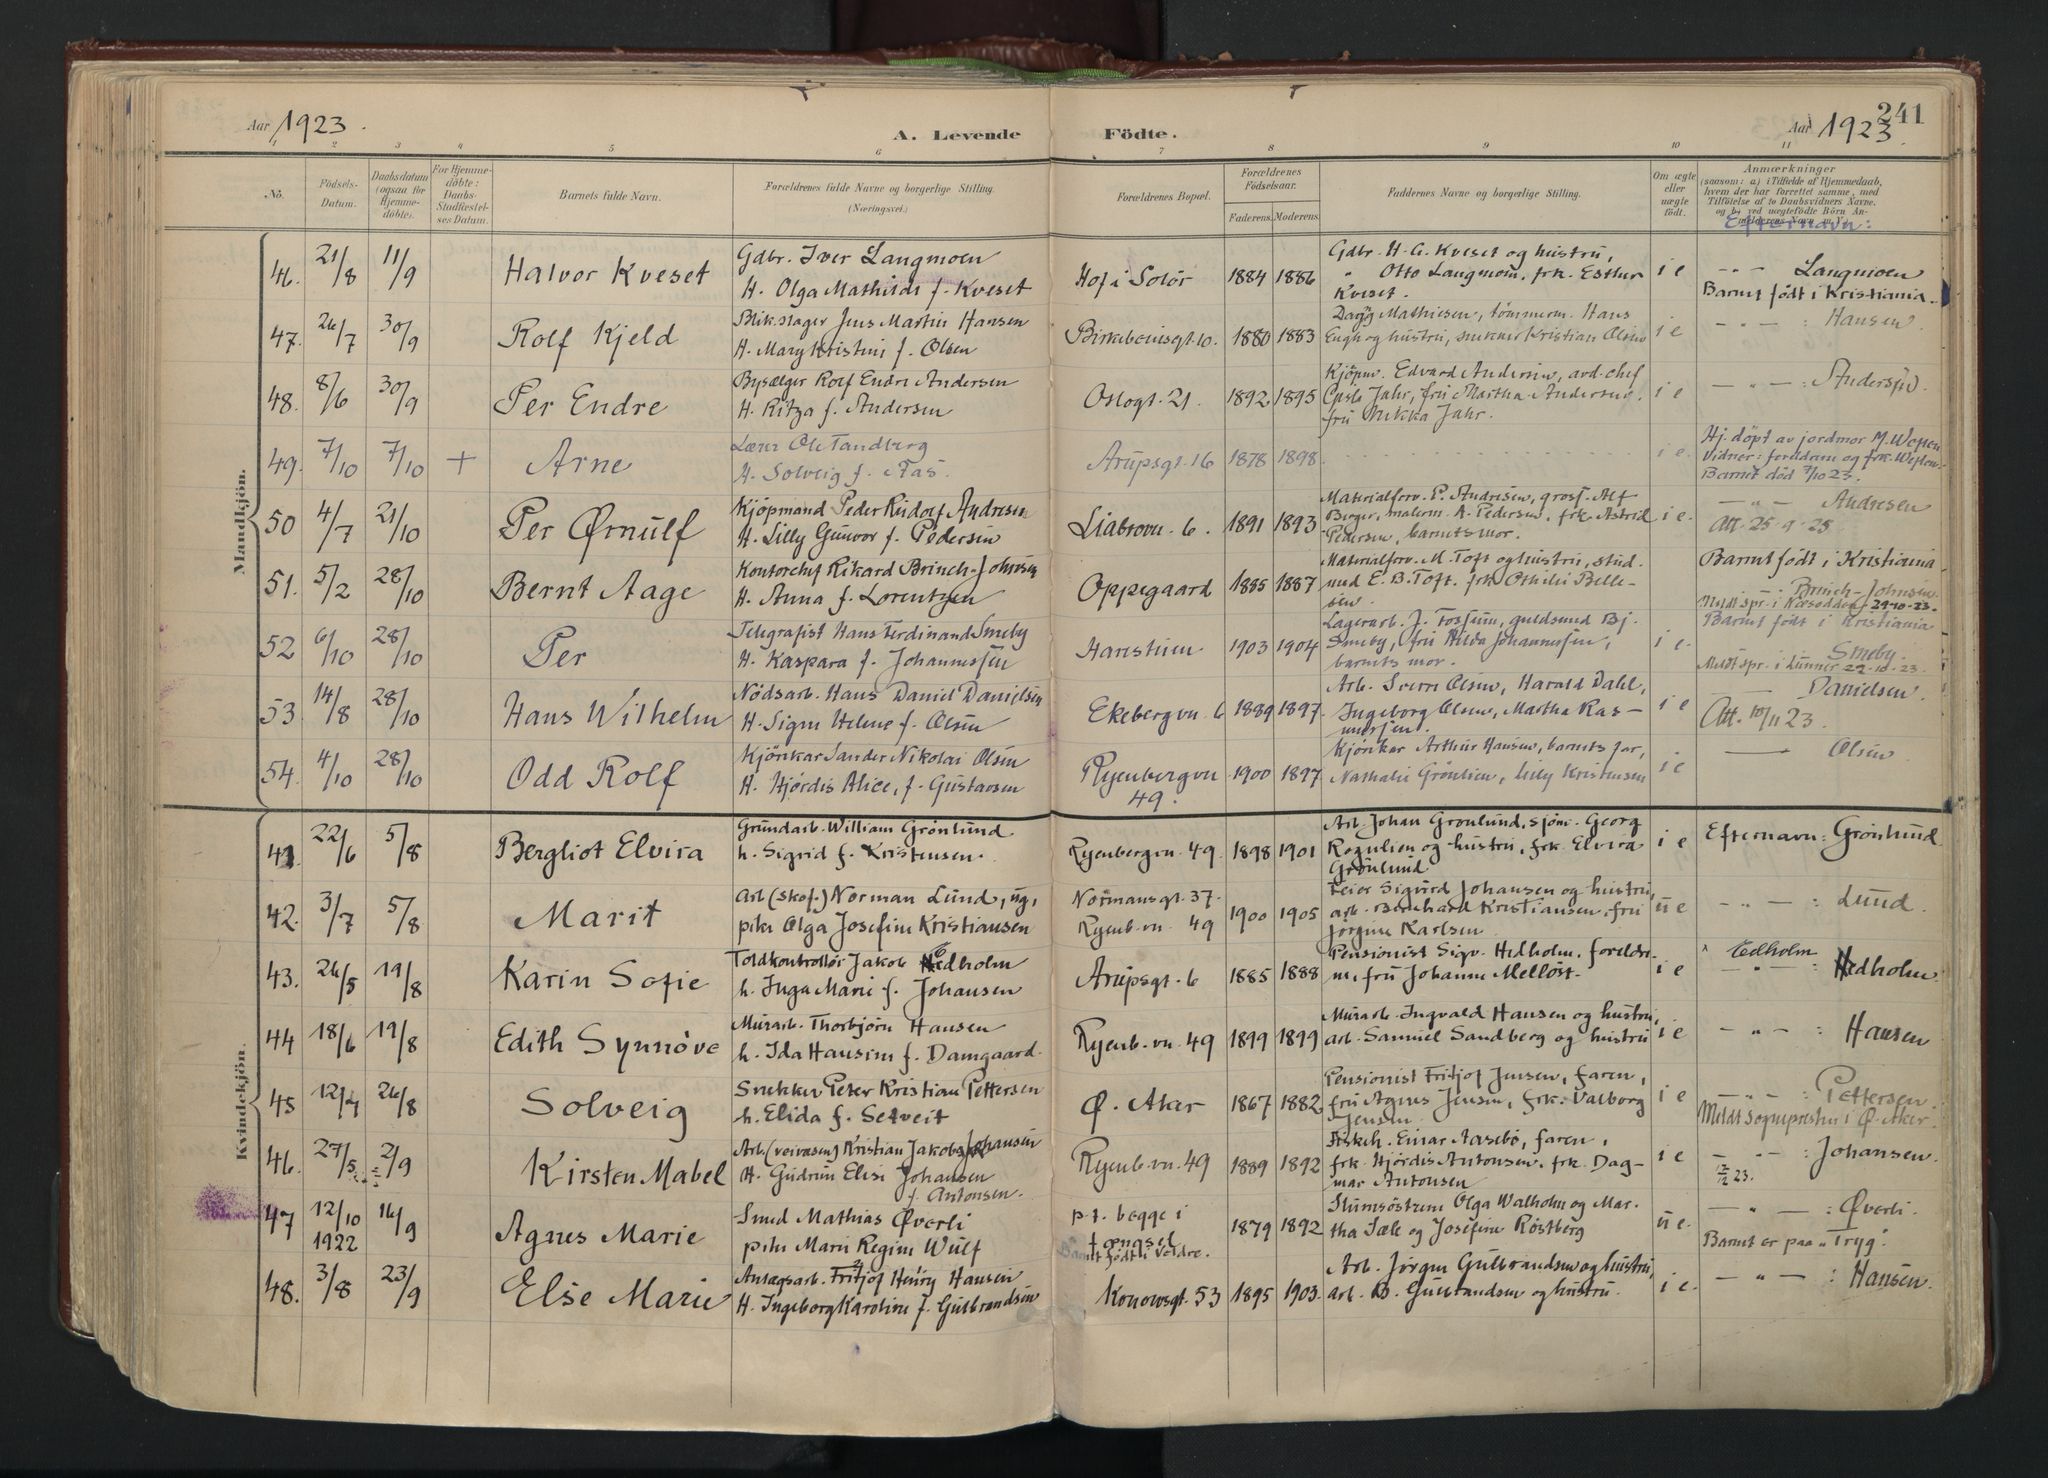 Aar 1923.
A. Levende Födte.
241
Aar 1923
1 2 3 4 5 6 7 8 9 10 11
No.
Födsels-Datum.
Daabsdatum (ogsaa for Hjemme-döbte).
For Hjemme-döbte: Daabs-Stadfæstel-ses Datum.
Barnets fulde Navn.
Forældrenes fulde Navne og borgerlige Stilling.
(Næringsvei.)
Forældrenes Bopæl.
Forældrenes Födselsaar.
Faderens. Moderens.
Faddernes Navne og borgerlige Stilling.
Om ægte eller uægte födt.
Anmærkninger
(saasom: a) i Tilfælde af Hjemmedaab,
hvem der har forrettet samme, med
Tilföielse af to Daabsvidners Navne.
og b) ved uægtefödte Börn An-
Efternavn:
Mandkjön.
46. 21/8 11/9 Halvor Kveset
Gdbr. Iver Langmoen
H. Olga Mathilde f. Kveset
Hof i Solör 1884 1886
Gdbr. H. G. Kveset og hustru,
" Otto Langmoen, frk. Esther
Kveset.
i e
-"- Langmoen
Barnet födt i Kristiania.
47. 26/7 30/9 Rolf Kjeld
Blikslager Jens Martin Hansen
H. Mary Kristine f. Olsen
Birkebeinegt. 10. 1880 1883
Dagny Mathiesen, tömmerm. Hans
Engh og hustru, snekker Kristian Olsen
i e
-"- : Hansen
48. 8/6 30/9 Per Endre
Bysælger Rolf Endre Andersen
H. Ritza f. Andersen
Oslogt. 21. 1892 1895
Kjöpm. Edvard Andersen, avd. chef
Jahr, frü Martha Andersen,
frü Jahr.
i e
-"- : Andersen.
49. 7/10 7/10 + Arne
Lærer Ole Tandberg
H. Solveig f. Aas
Arupsgt. 16 1878 1898
i e.
Hj. döpt av jordmor M. Westen
Vidner: foreldrene og frk. Westen.
Barnet död 7/10 23.
50 4/7 21/10 Per Ørnulf
Kjöpmand Peder Rudolf Andresen
H. Lilly Gunvor f. Pedersen
Liabrovn. 6. 1891 1893
Materialforv. P. Andresen, gross. Alf
Berger, malerm. A. Pedersen, frk. Astrid
Pedersen, barnets mor.
i e.
-"- Andresen
Att. 25-9-25
51. 5/2 28/10 Bernt Aage
Kontorchef Rikard Brinch-Johnsen
H. Anna f. Lorentzen
Oppegaard 1885 1887
Materialforv. M. Toft og hustru, stud.
med E. B. Toft, frk. Othilie Belle-
sen
i e
Barnet födt i Kristiania
-"- : Brinch-Johnsen
Meldt spr. i Næsodden 29-10-23.
52 6/10 28/10 Per
Telegrafist Hans Ferdinand Smeby
H. Kaspara f. Johannessen
Harestuen 1903 1904
Lagerarb. J. Fossum, guldsmed Bj.
Smeby, frü Hilda Johannessen,
barnets mor.
i e.
Barnet födt i Kristiania
Smeby.
Meldt spr. i Lunner 29-10-23.
53. 14/8 28/10 Hans Wilhelm
Nödsarb. Hans Daniel Danielsen
H. Signe Helene f. Olsen
Ekebergvn. 6 1889 1897
Arb. Sverre Olsen, Harald Dahl,
Ingeborg Olsen, Martha Ras-
mussen.
i e
Danielsen.
Att. 10/11 23.
54. 4/10 28/10 Odd Rolf
Kjörekar Sander Nikolai Olsen
H. Hjördis Alice, f. Gustavsen
Ryenbergvn 49. 1900 1897
Kjörekar Arthur Hansen, barnets far,
Nathalie Grönlien, Lilly Kristensen
i e
Olsen
Kvindekjön.
41. 22/6 5/8 Bergliot Elvira
Grundarb. William Grönlund
h. Sigrid f. Kristensen.
Ryenbergvn. 49. 1898 1901
Arb. Johan Grönlund, sjöm. Georg
Rognlien og hustru, frk. Elvira
Grönlund
i e
Efternavn: Grönlund.
42. 3/7 5/8 Marit
Arb. (skof.) Norman Lund, ug,
pike Olga Josefine Kristiansen
Normansgt. 37.
Ryenb. vn. 49 1900 1905
Feier Sigurd Johansen og hustru,
arb. Bernhard Kristiansen, frü
Jörgine Karlsen
u e
-"- : Lund.
43. 26/5 19/8 Karin Sofie
Toldkontrollör Jakob Hedholm
h. Inga Marie f. Johansen
Arupsgt. 6 1885 1888
Pensionist Sigv. Hedholm, foreldre-
ne, frü Johanne Mellöst.
i e
Eedholm
-"- : Hedholm.
44 18/6 19/8 Edith Synnöve
Murarb. Thorbjörn Hansen
h. Ida Hansine f. Damgaard.
Ryenb. vn. 49 1899 1899
Murarb. Ingvald Hansen og hustru,
arb. Samuel Sandberg og hustru
i e
-"- : Hansen
45 12/7 26/8 Solveig
Snekker Peter Kristian Pettersen
h. Elida f. Setveit
Ø. Aker 1867 1882
Pensionist Fritjof Jensen, faren,
frü Agnes Jensen, frk. Valborg
Jensen
i e
-"- : Pettersen.
Meldt sogneprsten i Ø. Aker.
46. 27/5 2/9 Kirsten Mabel
Arb. (veivæsen) Kristian Jakob Johansen
H. Gudrun Elise Johansen
f. Antonsen.
Ryenb. vn. 49 1889 1892
Fiskeh. Einar Aasebö, faren,
frk. Hjördis Antonsen, frk. Dag-
mar Antonsen
i e
-"- : Johansen.
47 12/10 1922 16/9 Agnes Marie
Smed Mathias Øverli
pike Marie Regine Wulf
p.t. begge i
fængsel
Barnet födt i Veldre.
1879 1892
Slumsöstrene Olga Walholm og Mar-
tha Sæle og Josefine Röstberg
u e.
-"- : Øverli.
Barnet er paa "Tryg".
48. 3/8 23/9 Else Marie
Anlægsarb. Fritjof Henry Hansen
H. Ingeborg Karoline f. Gulbrandsen
Konowsgt. 53 1895 1903.
Arb. Jörgen Gulbrandsen og hustru,
arb. B. Gulbrandsen og hustru.
i e.
-"- : Hansen.